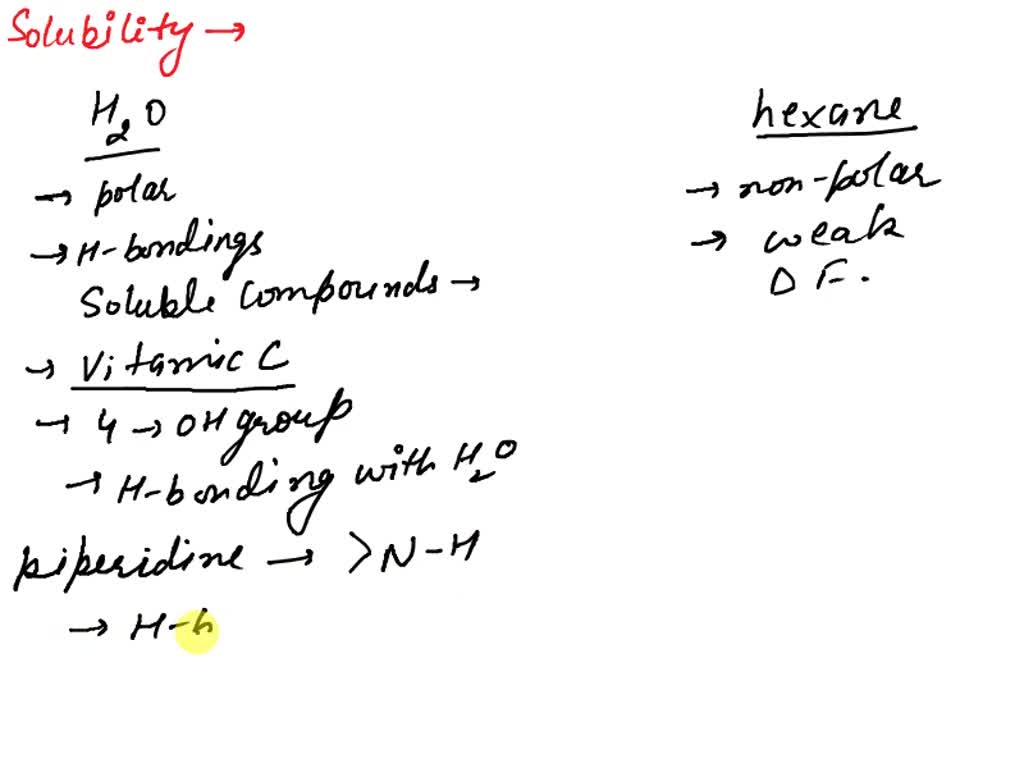 Solubility →
H2O
→ polar
→ H-bondings
Soluble compounds →
→ Vitamic C
→ 4 → OH group
→ H-bonding with H2O
piperidine → >N-H
→ H-b
hexane
→ non-polar
→ weak
D F.